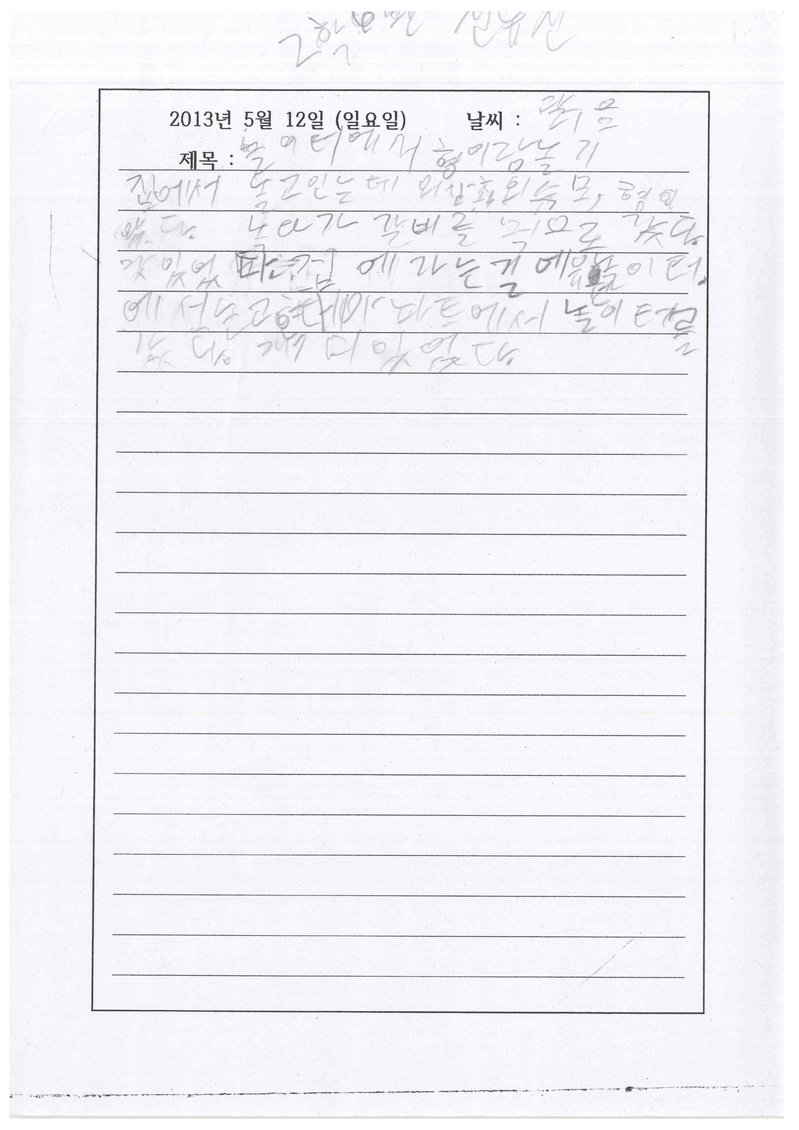 2학년
2013년 5월 12일 (일요일) 날씨 :
제목 : 놀이터에서 형이랑놀기
집에서 놀고인는데 외삼춘외숙모, 형이
놀다가 갈비를 먹으로 갔다
맛있었다 집에 가는길에 놀이터
에서놀고 아파트에서 놀이터를
갔다. 재미있었다